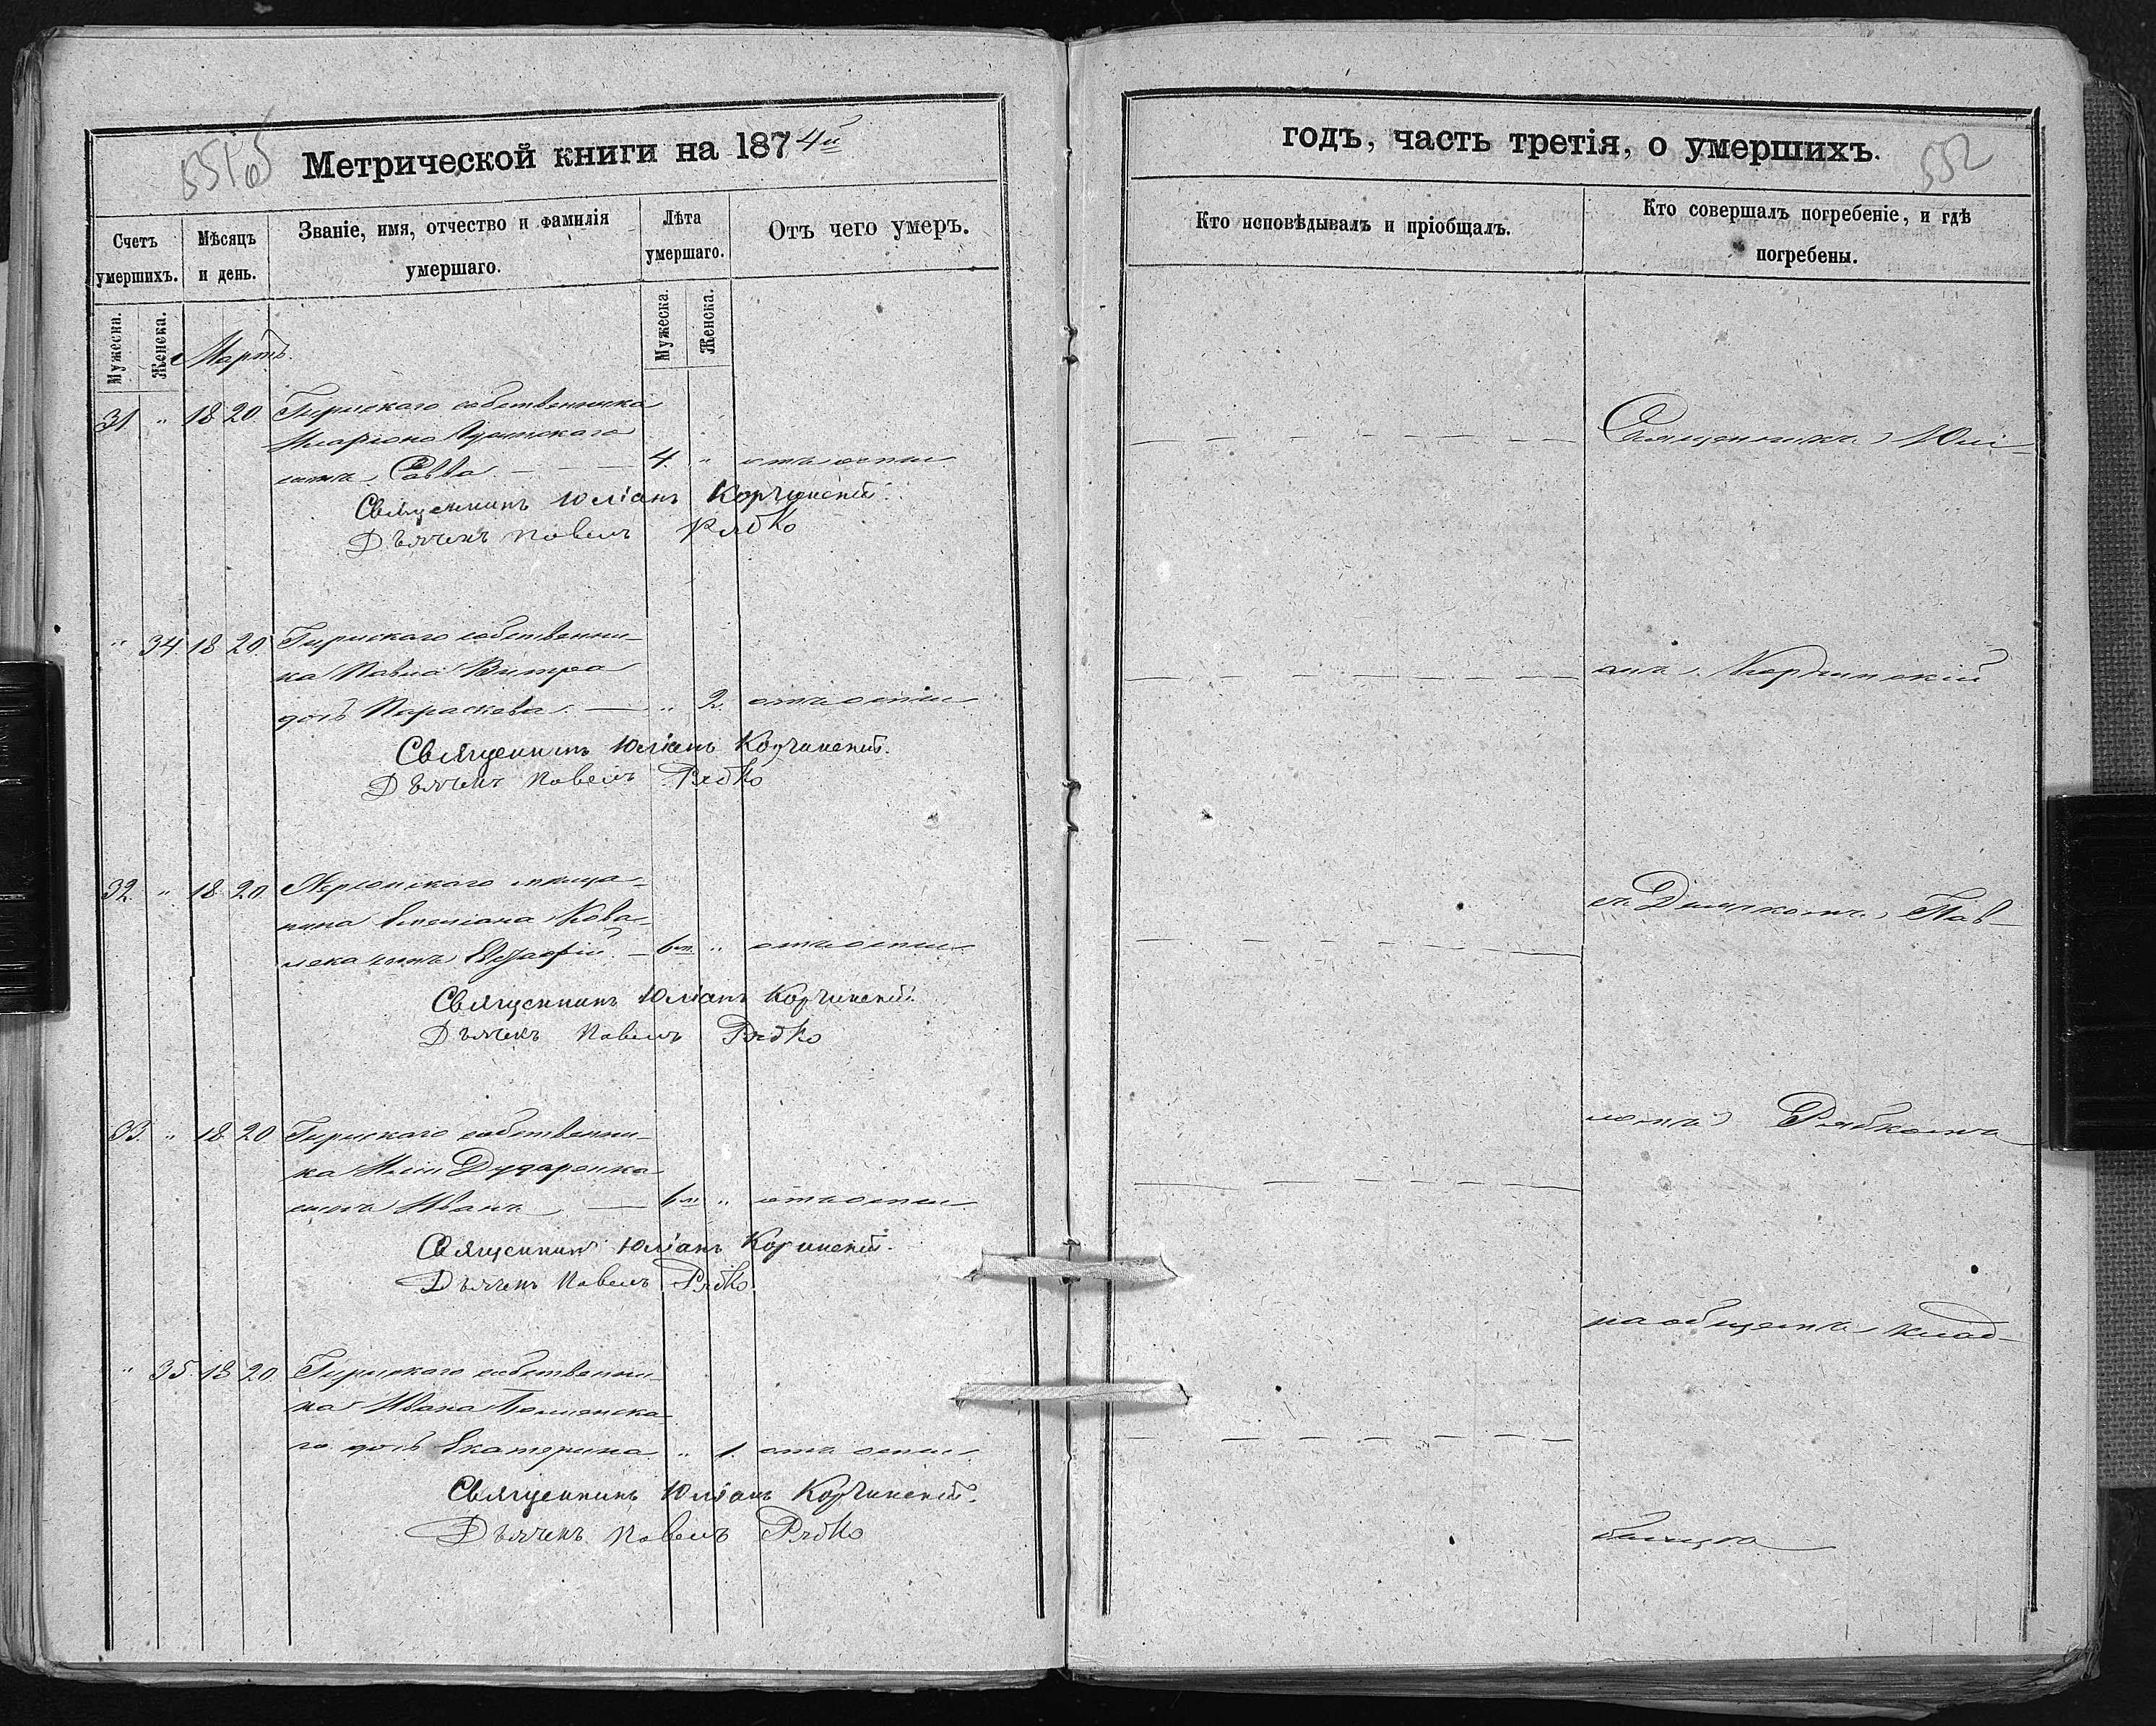 551
65
Метрической книги на 1874й
Счетъ умершихъ.
Мѣсяцъ и день.
Званіе, имя, отчество и фамилія умершаго.
Лѣта умершаго.
Отъ чего умеръ.
Мужеска.
Женска.
Мужеска.
Женска.
Мартъ.
31. " 18 20. Гирскаго собственника
Иларіона
сынъ Савва. — 4. " отъ оспы
Священникъ Юліанъ Корчинскій.
Дьячекъ Павелъ Рябко
" 34. 18 20. Гирскаго собственни-
ка Павла Витра
дочь Параскева. — " 2. отъ оспы
Священникъ Юліанъ Корчинскій.
Дьячекъ Павелъ Рябко
32. " 18 20. Херсонскаго мѣща-
нина Емеліана Кова-
лека сынъ — 6 м. " отъ оспы
Священникъ Юліанъ Корчинскій.
Дьячекъ Павелъ Рябко
33. " 18. 20 Гирскаго собственни-
ка Иліи Дударенка
сынъ Иванъ — 6 м. " отъ оспы
Священникъ Юліанъ Корчинскій.
Дьячекъ Павелъ Рябко.
" 35. 18 20. Гирскаго собственни-
ка Ивана
го дочь Екатерина " 1. отъ оспы.
Священникъ Юліанъ Корчинскій.
Дьячекъ Павелъ Рябко
годъ, часть третія, о умершихъ.
552
Кто исповѣдывалъ и пріобщалъ.
Кто совершалъ погребеніе, и гдѣ
погребены.
Священникъ Юлі-
анъ Корчинскій
съ Дьячкомъ Пав-
ломъ Рябкомъ
на общемъ клад-
бищѣ